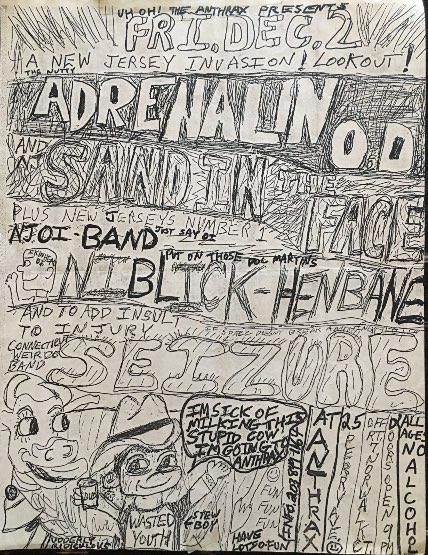 UH OH! THE ANTHRAX PRESENTS
FRI. DEC. 2
A NEW JERSEY INVASION! LOOKOUT!
THE NUTTY
ADRENALIN O.D.
AND
SAND IN THE FACE
PLUS NEW JERSEYS NUMBER 1
NJ OI-BAND JUST SAY OI
PUT ON THOSE DOC MARTINS
BLICK-HENBANE
AND TO ADD INSULT
TO INJURY
CONNECTICUT
WEIRDO
BAND
SEIZURE
I'M SICK OF
MILKING THIS
STUPID COW
I'M GOING TO
ANTHRAX
WASTED
YOUTH
STEW
BOY
HAVE
LOTS-O-FUN
FUN
FUN
INFO 203
AT ANTHRAX
25 PERRY AVE.
OFF RT 7
NORWALK CT
DOORS OPEN 9 PM
ALL AGES NO ALCOHOL
UDDERLY
RIDICULOUS